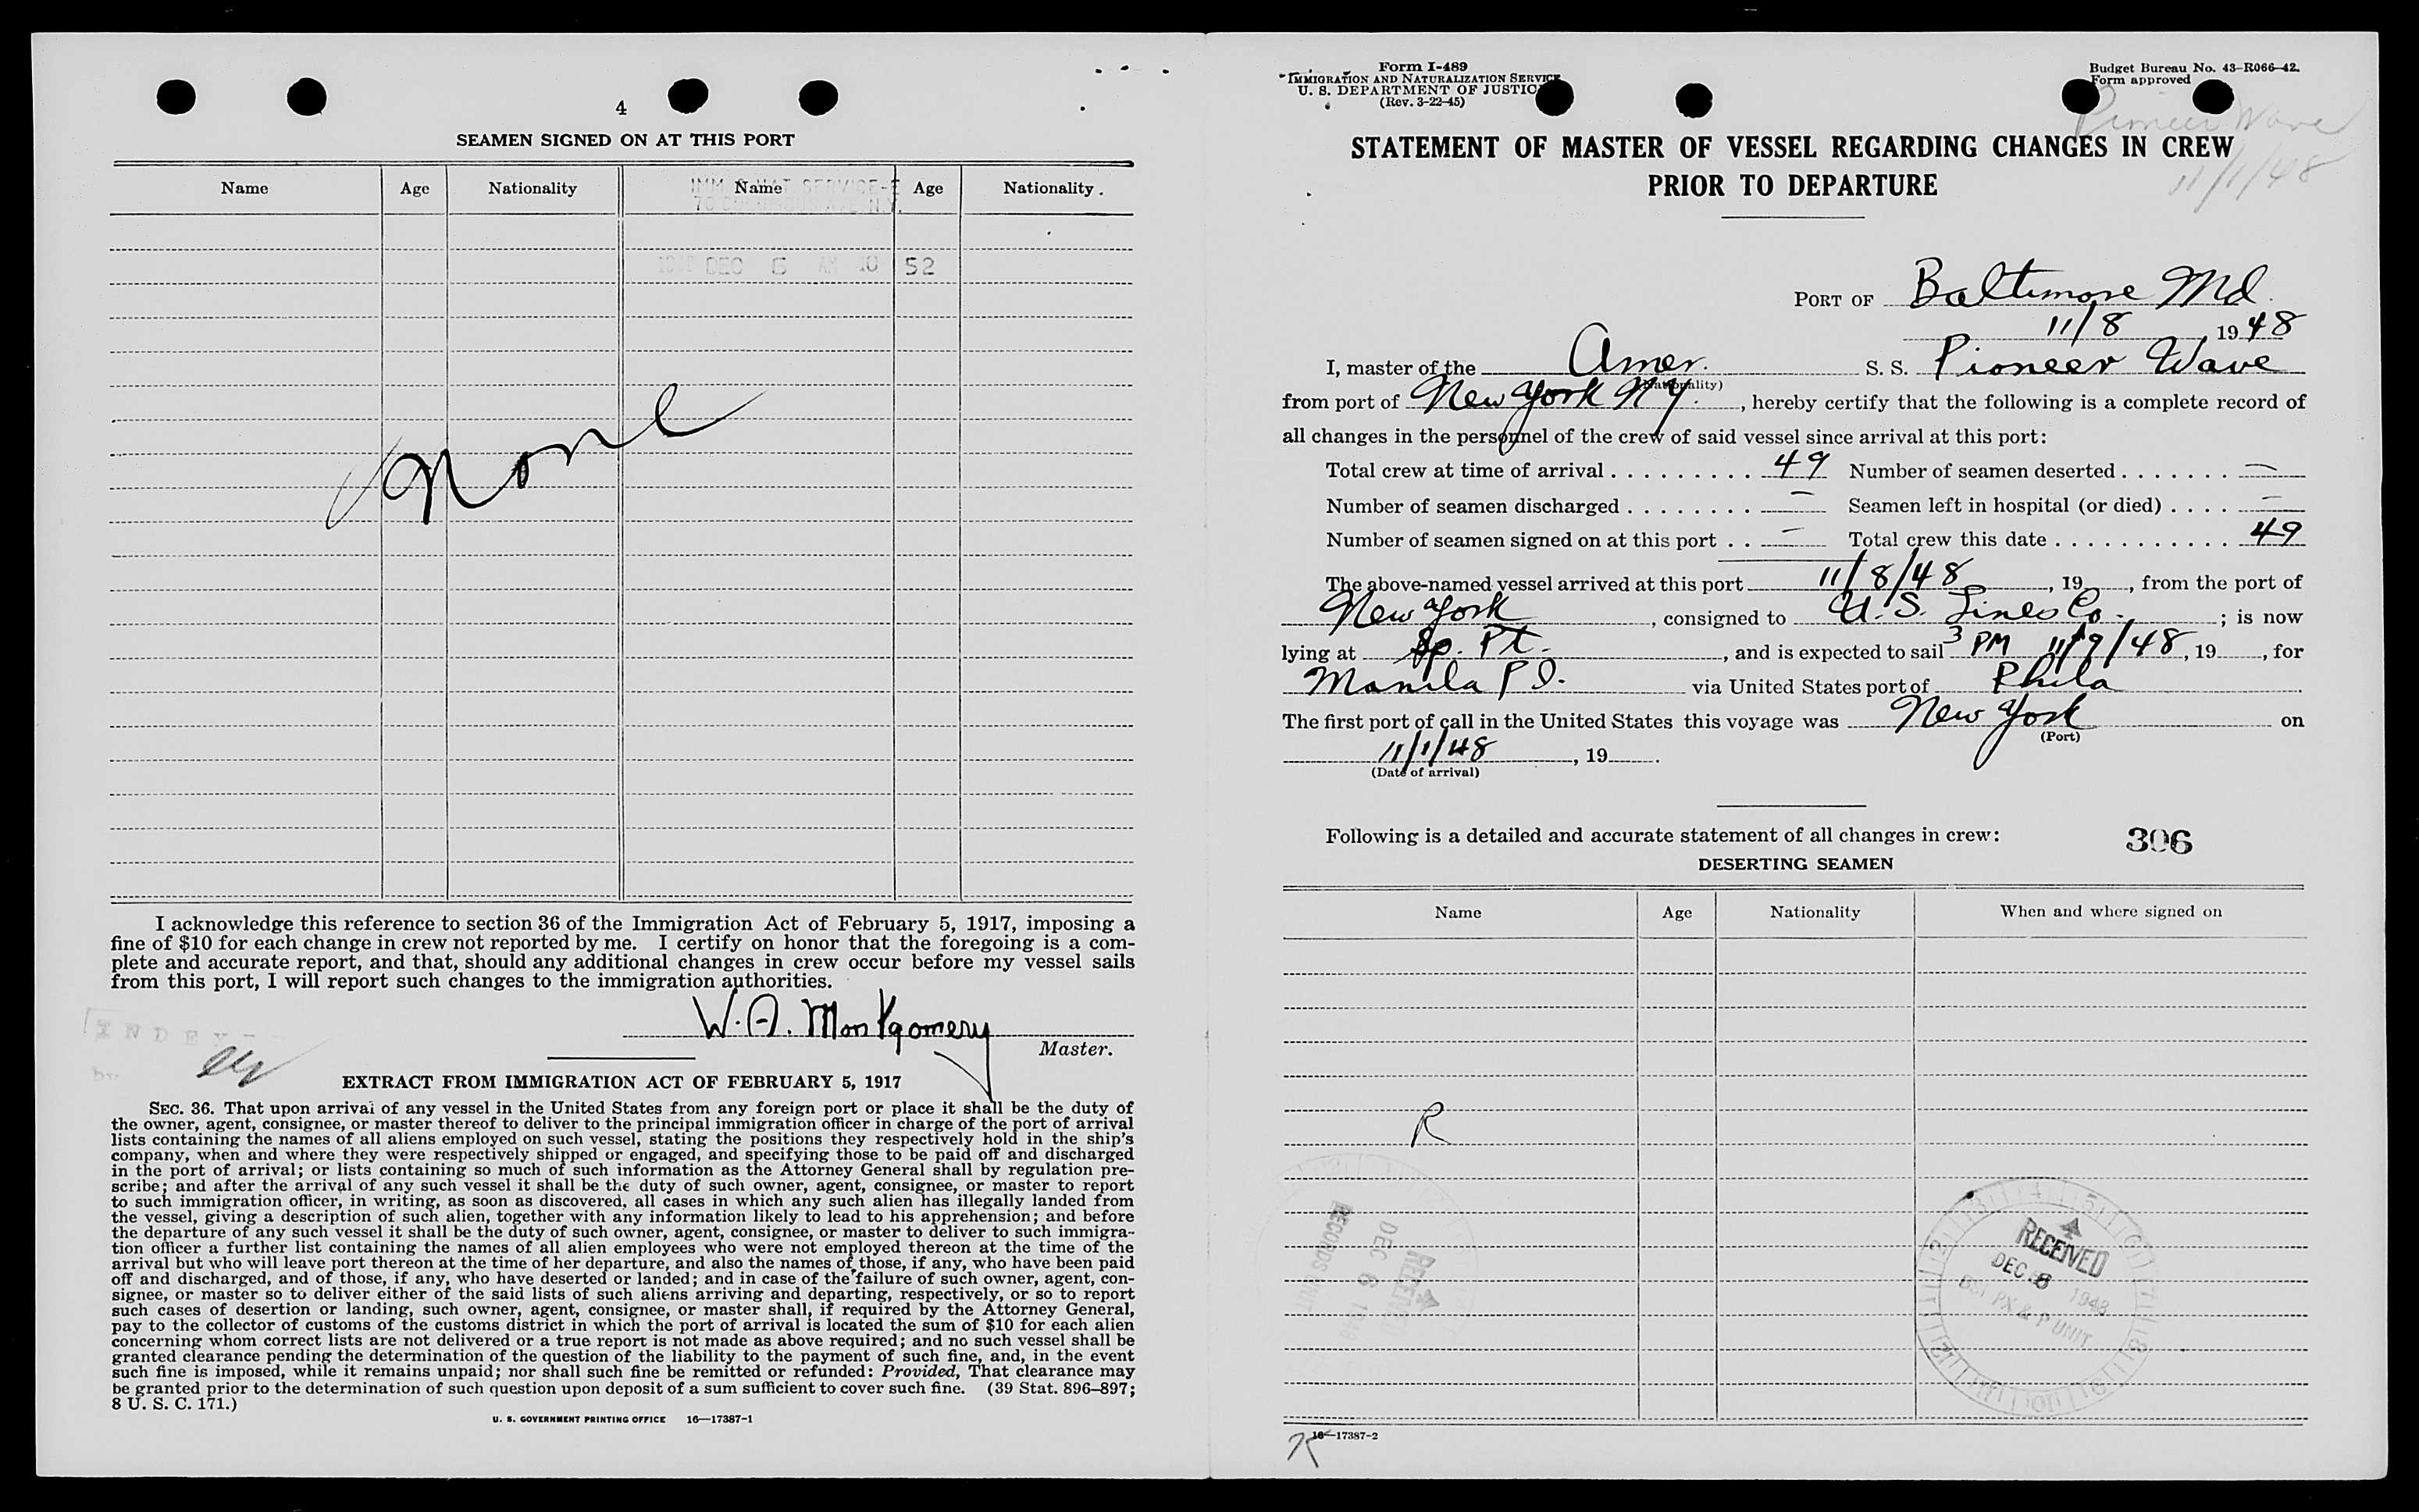 4
SEAMEN SIGNED ON AT THIS PORT
Name Age Nationality Name Age Nationality
DEC 6 AM 10 52
None
I acknowledge this reference to section 36 of the Immigration Act of February 5, 1917, imposing a
fine of $10 for each change in crew not reported by me. I certify on honor that the foregoing is a com-
plete and accurate report, and that, should any additional changes in crew occur before my vessel sails
from this port, I will report such changes to the immigration authorities.
W. A. Montgomery
Master.
INDEX
EXTRACT FROM IMMIGRATION ACT OF FEBRUARY 5, 1917
SEC. 36. That upon arrival of any vessel in the United States from any foreign port or place it shall be the duty of
the owner, agent, consignee, or master thereof to deliver to the principal immigration officer in charge of the port of arrival
lists containing the names of all aliens employed on such vessel, stating the positions they respectively hold in the ship's
company, when and where they were respectively shipped or engaged, and specifying those to be paid off and discharged
in the port of arrival; or lists containing so much of such information as the Attorney General shall by regulation pre-
scribe; and after the arrival of any such vessel it shall be the duty of such owner, agent, consignee, or master to report
to such immigration officer, in writing, as soon as discovered, all cases in which any such alien has illegally landed from
the vessel, giving a description of such alien, together with any information likely to lead to his apprehension; and before
the departure of any such vessel it shall be the duty of such owner, agent, consignee, or master to deliver to such immigra-
tion officer a further list containing the names of all alien employees who were not employed thereon at the time of the
arrival but who will leave port thereon at the time of her departure, and also the names of those, if any, who have been paid
off and discharged, and of those, if any, who have deserted or landed; and in case of the failure of such owner, agent, con-
signee, or master so to deliver either of the said lists of such aliens arriving and departing, respectively, or so to report
such cases of desertion or landing, such owner, agent, consignee, or master shall, if required by the Attorney General,
pay to the collector of customs of the customs district in which the port of arrival is located the sum of $10 for each alien
concerning whom correct lists are not delivered or a true report is not made as above required; and no such vessel shall be
granted clearance pending the determination of the question of the liability to the payment of such fine, and, in the event
such fine is imposed, while it remains unpaid; nor shall such fine be remitted or refunded: Provided, That clearance may
be granted prior to the determination of such question upon deposit of a sum sufficient to cover such fine. (39 Stat. 896–897;
8 U. S. C. 171.)
U. S. GOVERNMENT PRINTING OFFICE 16—17387-1
Form I-489
IMMIGRATION AND NATURALIZATION SERVICE
U. S. DEPARTMENT OF JUSTICE
(Rev. 3-22-45)
Budget Bureau No. 43-R066-42.
Form approved
Pioneer Wave
11/1/48
STATEMENT OF MASTER OF VESSEL REGARDING CHANGES IN CREW
PRIOR TO DEPARTURE
PORT OF Baltimore Md.
11/8 1948
I, master of the Amer. S. S. Pioneer Wave
(Nationality)
from port of New York N.Y., hereby certify that the following is a complete record of
all changes in the personnel of the crew of said vessel since arrival at this port:
Total crew at time of arrival . . . . . . . . . . 49 Number of seamen deserted . . . . . . . —
Number of seamen discharged . . . . . . . . — Seamen left in hospital (or died) . . . . —
Number of seamen signed on at this port . . — Total crew this date . . . . . . . . . . . . 49
The above-named vessel arrived at this port 11/8/48, 19 , from the port of
New York, consigned to U.S. Lines Co.; is now
lying at Sp. Pt., and is expected to sail 3 PM 11/9/48, 19 , for
Manila P.I. via United States port of Phila
The first port of call in the United States this voyage was New York on
(Port)
11/1/48, 19 .
(Date of arrival)
Following is a detailed and accurate statement of all changes in crew: 306
DESERTING SEAMEN
Name Age Nationality When and where signed on
R
RECEIVED
DEC 6 1948
RECORDS UNIT
RECEIVED
DEC 8 1948
UNIT
16—17387-2